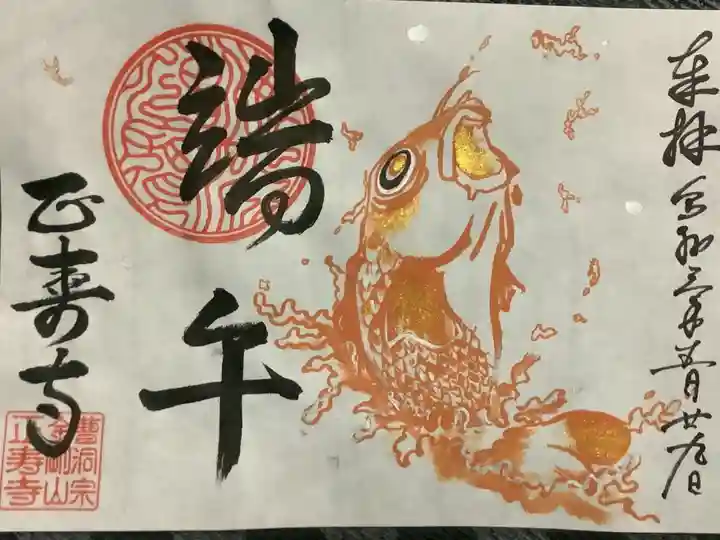 奉拝 令和三年五月廿九日
端午
正寿寺
曹洞宗
金剛山
正寿寺